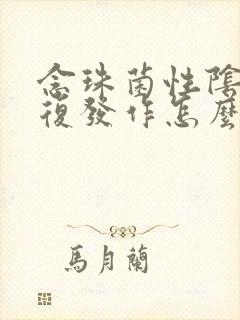 念珠菌性陰
復發作怎麼
馬月蘭